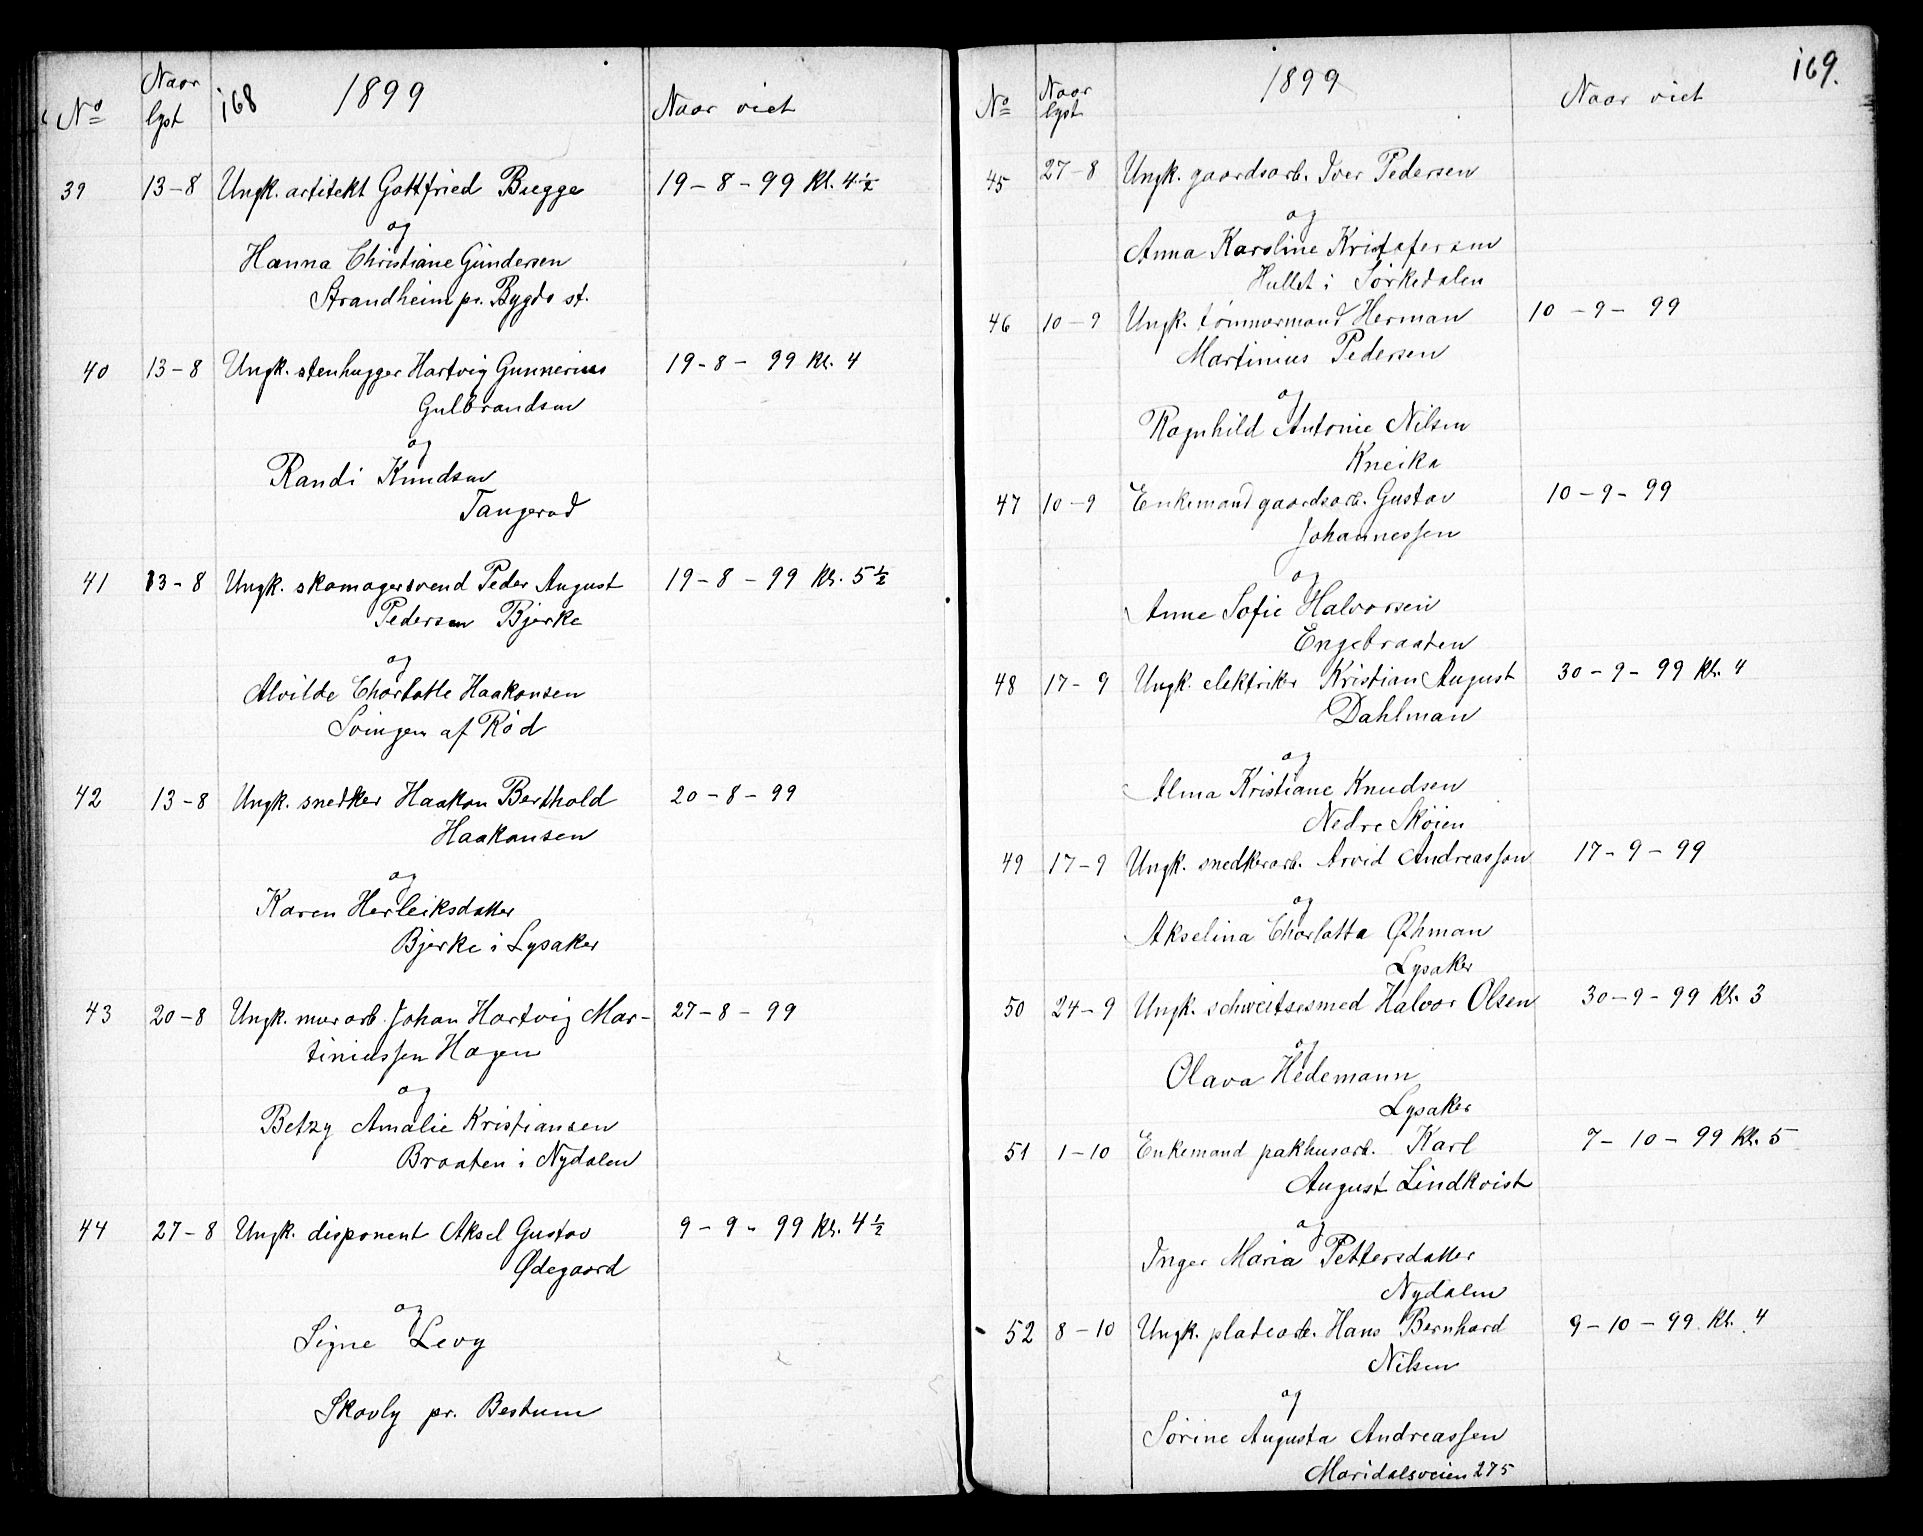 168 1899
No Naar lyst Naar viet
39 13-8 Ungk. artitekt Gottfried Bugge 19-8-99 Kl. 4 1/2
og
Hanna Christiane Gundersen
Strandheim pr. Bygdø st.
40 13-8 Ungk. stenhugger Hartvig Gunnerius 19-8-99 Kl. 4
Gulbrandsen
og
Randi Knudsen
Tangerud
41 13-8 Ungk. skomagersvend Peder August 19-8-99 Kl. 5 1/2
Pedersen Bjerke
og
Alvilde Charlotte Haakonsen
Svingen af Rød
42 13-8 Ungk. snedker Haakon Berthold 20-8-99
Haakonsen
og
Karen Herleiksdatter
Bjerke i Lysaker
43 20-8 Ungk. murarb. Johan Hartvig Mar- 27-8-99
tiniussen Hagen
og
Betzy Amalie Kristiansen
Braaten i Nydalen
44 27-8 Ungk. disponent Aksel Gustav 9-9-99 Kl. 4 1/2
Ødegaard
og
Signe Levy
Skovly pr. Bestum
1899 169.
No Naar lyst Naar viet
45 27-8 Ungk. gaardsarb. Iver Pedersen
og
Anna Karoline Kristofersen
Hullet i Sørkedalen
46 10-9 Ungk. tømmermand Herman 10-9-99
Martinius Pedersen
og
Ragnhild Antonie Nilsen
Kneika
47 10-9 Enkemand gaardsarb. Gustav 10-9-99
Johannessen
og
Anne Sofie Halvorsen
Engebraaten
48 17-9 Ungk. elektriker Kristian August 30-9-99 Kl. 4
Dahlman
og
Alma Kristiane Knudsen
Nedre Skøien
49 17-9 Ungk. snedkerarb. Arvid Andreasson 17-9-99
og
Akselina Charlotta Øhman
Lysaker
50 24-9 Ungk. schweitsesmed Halvor Olsen 30-9-99 Kl. 3
og
Olava Hedemann
Lysaker
51 1-10 Enkemand pakhusarb. Karl 7-10-99 Kl. 5
August Lindkvist
og
Inger Maria Pettersdatter
Nydalen
52 8-10 Ungk. pladearb. Hans Bernhard 9-10-99 Kl. 4
Nilsen
og
Sørine Augusta Andreassen
Maridalsveien 275